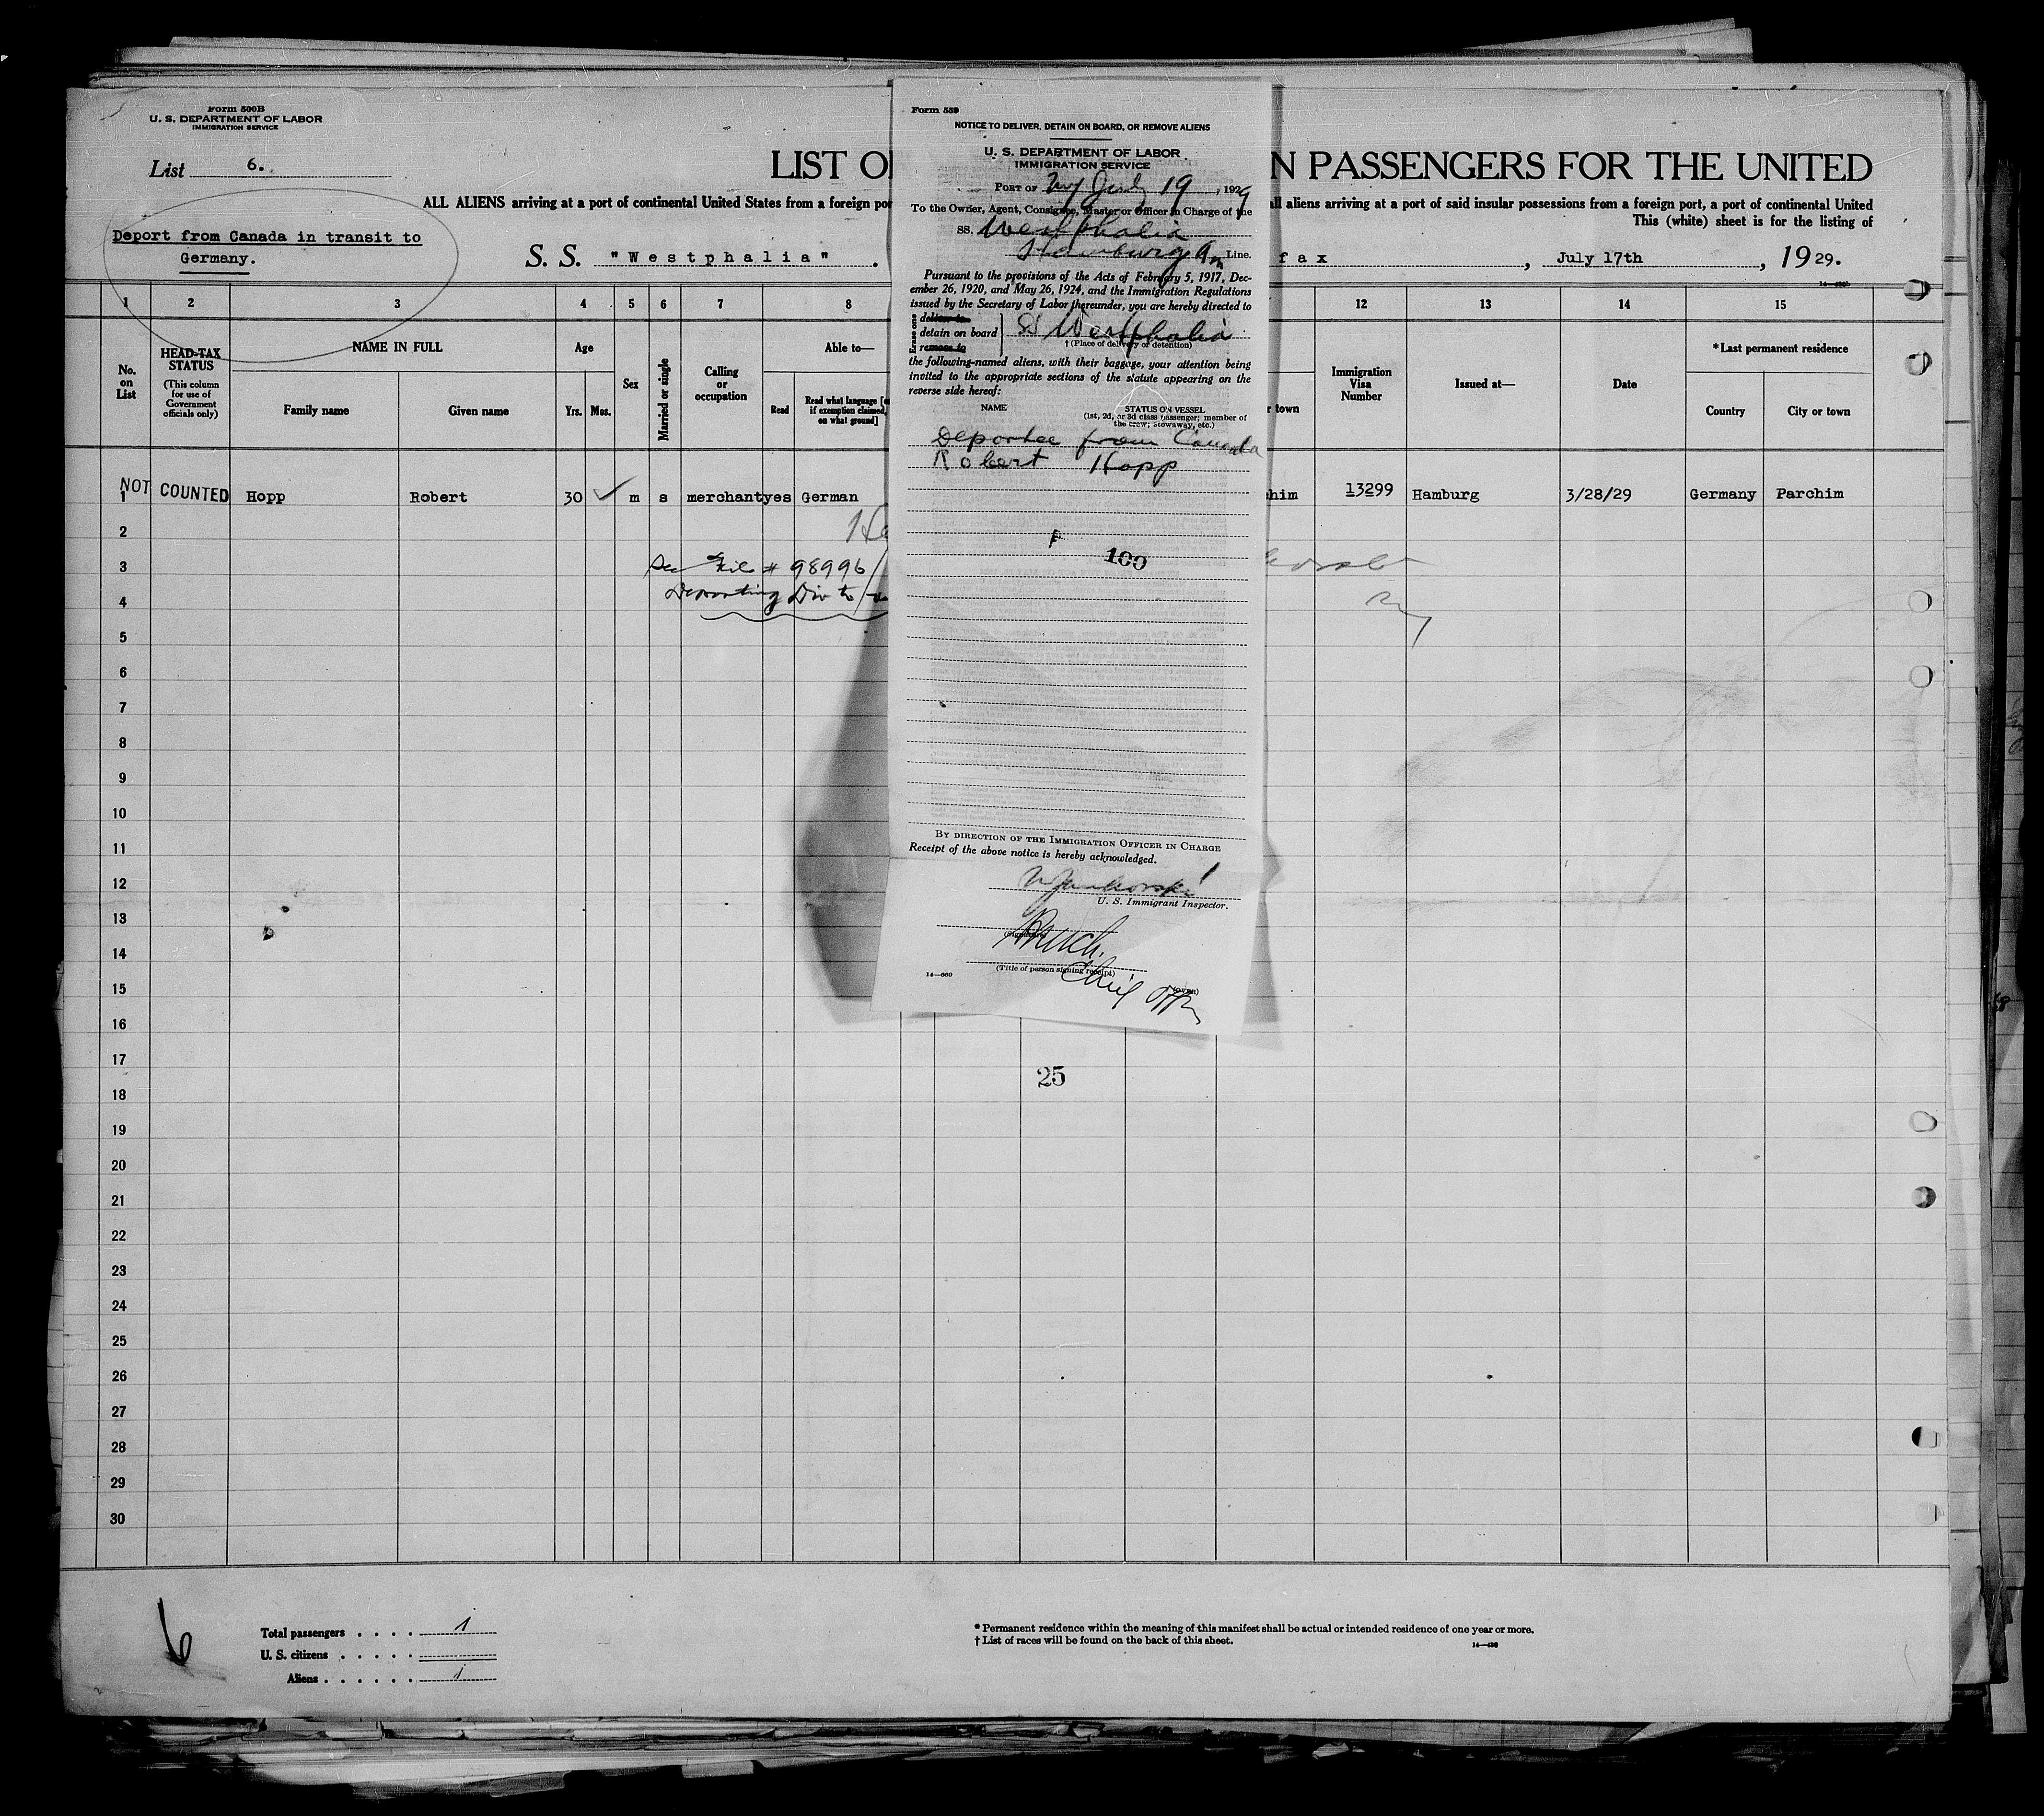 Form 500B
U. S. DEPARTMENT OF LABOR
IMMIGRATION SERVICE
List 6.
LIST O
N PASSENGERS FOR THE UNITED
ALL ALIENS arriving at a port of continental United States from a foreign por
all aliens arriving at a port of said insular possessions from a foreign port, a port of continental United
This (white) sheet is for the listing of
Deport from Canada in transit to
Germany.
S. S. "Westphalia" .
fax , July 17th , 1929.
1 2 3 4 5 6 7 8 12 13 14 15
No. on List
HEAD-TAX STATUS
(This column for use of Government officials only)
NAME IN FULL
Family name
Given name
Age
Yrs. Mos.
Sex
Married or single
Calling or occupation
Able to—
Read
Read what language [or if exemption claimed, on what ground]
r town
Immigration Visa Number
Issued at—
Date
*Last permanent residence
Country
City or town
NOT COUNTED
1 Hopp Robert 30 ✓ m s merchant yes German
him 13299 Hamburg 3/28/29 Germany Parchim
2
3 File # 98996
4 Deporting Div
5
6
7
8
9
10
11
12
13
14
15
16
17
18
19
20
21
22
23
24
25
26
27
28
29
30
25
Form 559
NOTICE TO DELIVER, DETAIN ON BOARD, OR REMOVE ALIENS
U. S. DEPARTMENT OF LABOR
IMMIGRATION SERVICE
PORT OF NY July 19, 1929
To the Owner, Agent, Consignee, Master or Officer in Charge of the
SS. Westphalia
Hamburg Am Line.
Pursuant to the provisions of the Acts of February 5, 1917, Dec-
ember 26, 1920, and May 26, 1924, and the Immigration Regulations
issued by the Secretary of Labor thereunder, you are hereby directed to
Erase one
deliver to
detain on board } SS Westphalia
remove to
† (Place of delivery or detention)
the following-named aliens, with their baggage, your attention being
invited to the appropriate sections of the statute appearing on the
reverse side hereof:
NAME
STATUS ON VESSEL
(1st, 2d, or 3d class passenger; member of
the crew; stowaway, etc.)
Deportee from Canada
Robert Hopp
100
BY DIRECTION OF THE IMMIGRATION OFFICER IN CHARGE
Receipt of the above notice is hereby acknowledged.
U. S. Immigrant Inspector.
(Signature)
(Title of person signing receipt)
Chief Offr
14—660
(OVER)
6
Total passengers . . . . 1
U. S. citizens . . . . .
Aliens . . . . . . 1
* Permanent residence within the meaning of this manifest shall be actual or intended residence of one year or more.
† List of races will be found on the back of this sheet.